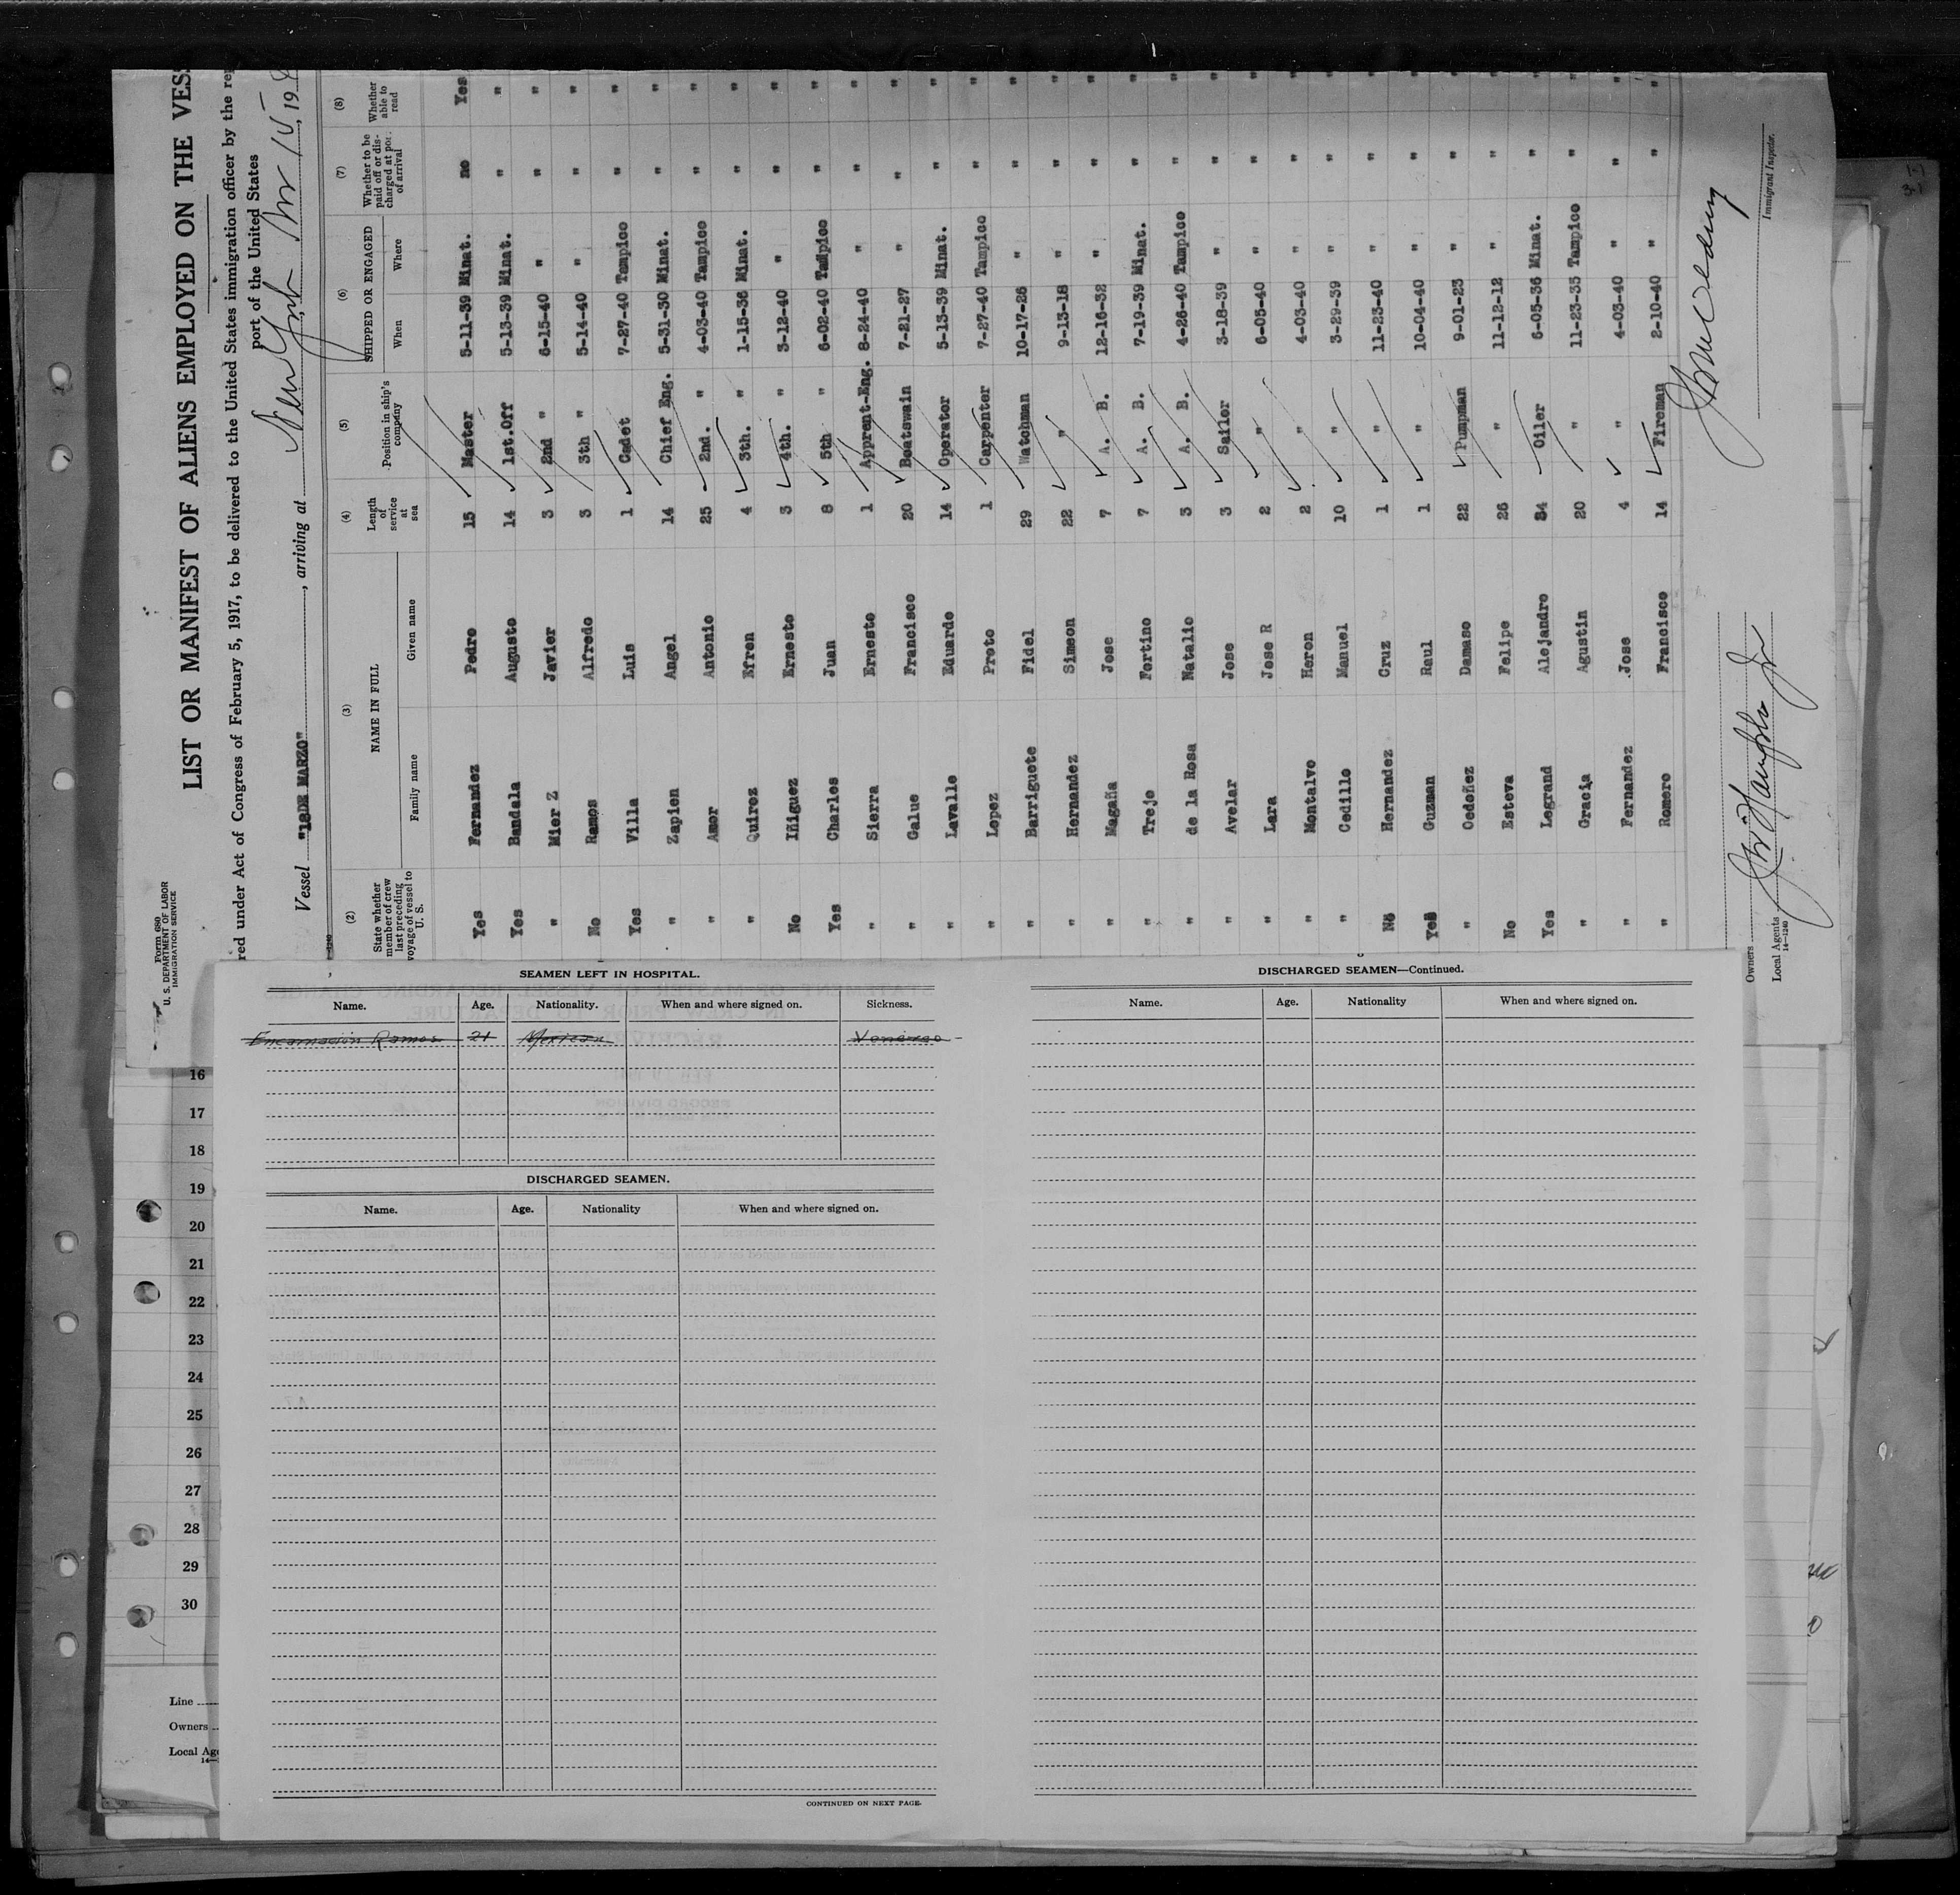 Form 680
U. S. DEPARTMENT OF LABOR
IMMIGRATION SERVICE
LIST OR MANIFEST OF ALIENS EMPLOYED ON THE VES
red under Act of Congress of February 5, 1917, to be delivered to the United States immigration officer by the rep
port of the United States
Vessel "18DE MARZO", arriving at New York, 19
(2) (3) (4) (5) (6) (7) (8)
State whether member of crew last preceding voyage of vessel to U. S.
NAME IN FULL
Family name Given name
Length of service at sea
Position in ship's company
SHIPPED OR ENGAGED
When Where
Whether to be paid off or discharged at port of arrival
Whether able to read
Yes Fernandez Pedro 15 Master 5-11-39 Minat. no Yes
Yes Bandala Augusto 14 1st.Off 5-13-39 Minat. " "
" Mier Z Javier 3 2nd " 6-15-40 " " "
No Ramos Alfredo 3 3th " 5-14-40 " " "
Yes Villa Luis 1 Cadet 7-27-40 Tampico " "
" Zapien Angel 14 Chief Eng. 5-31-30 Minat. " "
" Amor Antonio 25 2nd. " 4-03-40 Tampico " "
" Quiroz Efren 4 3th. " 1-15-36 Minat. " "
No Iñiguez Ernesto 3 4th. " 3-12-40 " " "
Yes Charles Juan 8 5th " 6-02-40 Tampico " "
" Sierra Ernesto 1 Apprent-Eng. 8-24-40 " " "
" Galue Francisco 20 Boatswain 7-21-27 " " "
" Lavalle Eduardo 14 Operator 5-13-39 Minat. " "
" Lopez Proto 1 Carpenter 7-27-40 Tampico " "
" Barriguete Fidel 29 Watchman 10-17-26 " " "
" Hernandez Simeon 22 " 9-13-18 " " "
" Magaña Jose 7 A. B. 12-16-32 " " "
" Trejo Fortino 7 A. B. 7-19-39 Minat. " "
" de la Rosa Natalio 3 A. B. 4-26-40 Tampico " "
" Avelar Jose 3 Sailor 3-18-39 " " "
" Lara Jose R 2 " 6-05-40 " " "
" Montalvo Heron 2 " 4-03-40 " " "
" Cedillo Manuel 10 " 3-29-39 " " "
No Hernandez Cruz 1 " 11-23-40 " " "
Yes Guzman Raul 1 " 10-04-40 " " "
" Ocdoñez Damaso 22 Pumpman 9-01-23 " " "
No Esteva Felipe 26 " 11-12-12 " " "
Yes Legrand Alejandro 34 Oiler 6-05-36 Minat. " "
" Gracia Agustin 20 " 11-23-35 Tampico " "
" Fernandez Jose 4 " 4-03-40 " " "
" Romero Francisco 14 Fireman 2-10-40 " " "
Immigrant Inspector.
Owners
Local Agents
14-1240
SEAMEN LEFT IN HOSPITAL.
Name. Age. Nationality. When and where signed on. Sickness.
Encarnación Ramos 21 Mexican Venereo
DISCHARGED SEAMEN.
Name. Age. Nationality When and where signed on.
CONTINUED ON NEXT PAGE.
DISCHARGED SEAMEN—Continued.
Name. Age. Nationality When and where signed on.
16
17
18
19
20
21
22
23
24
25
26
27
28
29
30
Line
Owners
Local Age